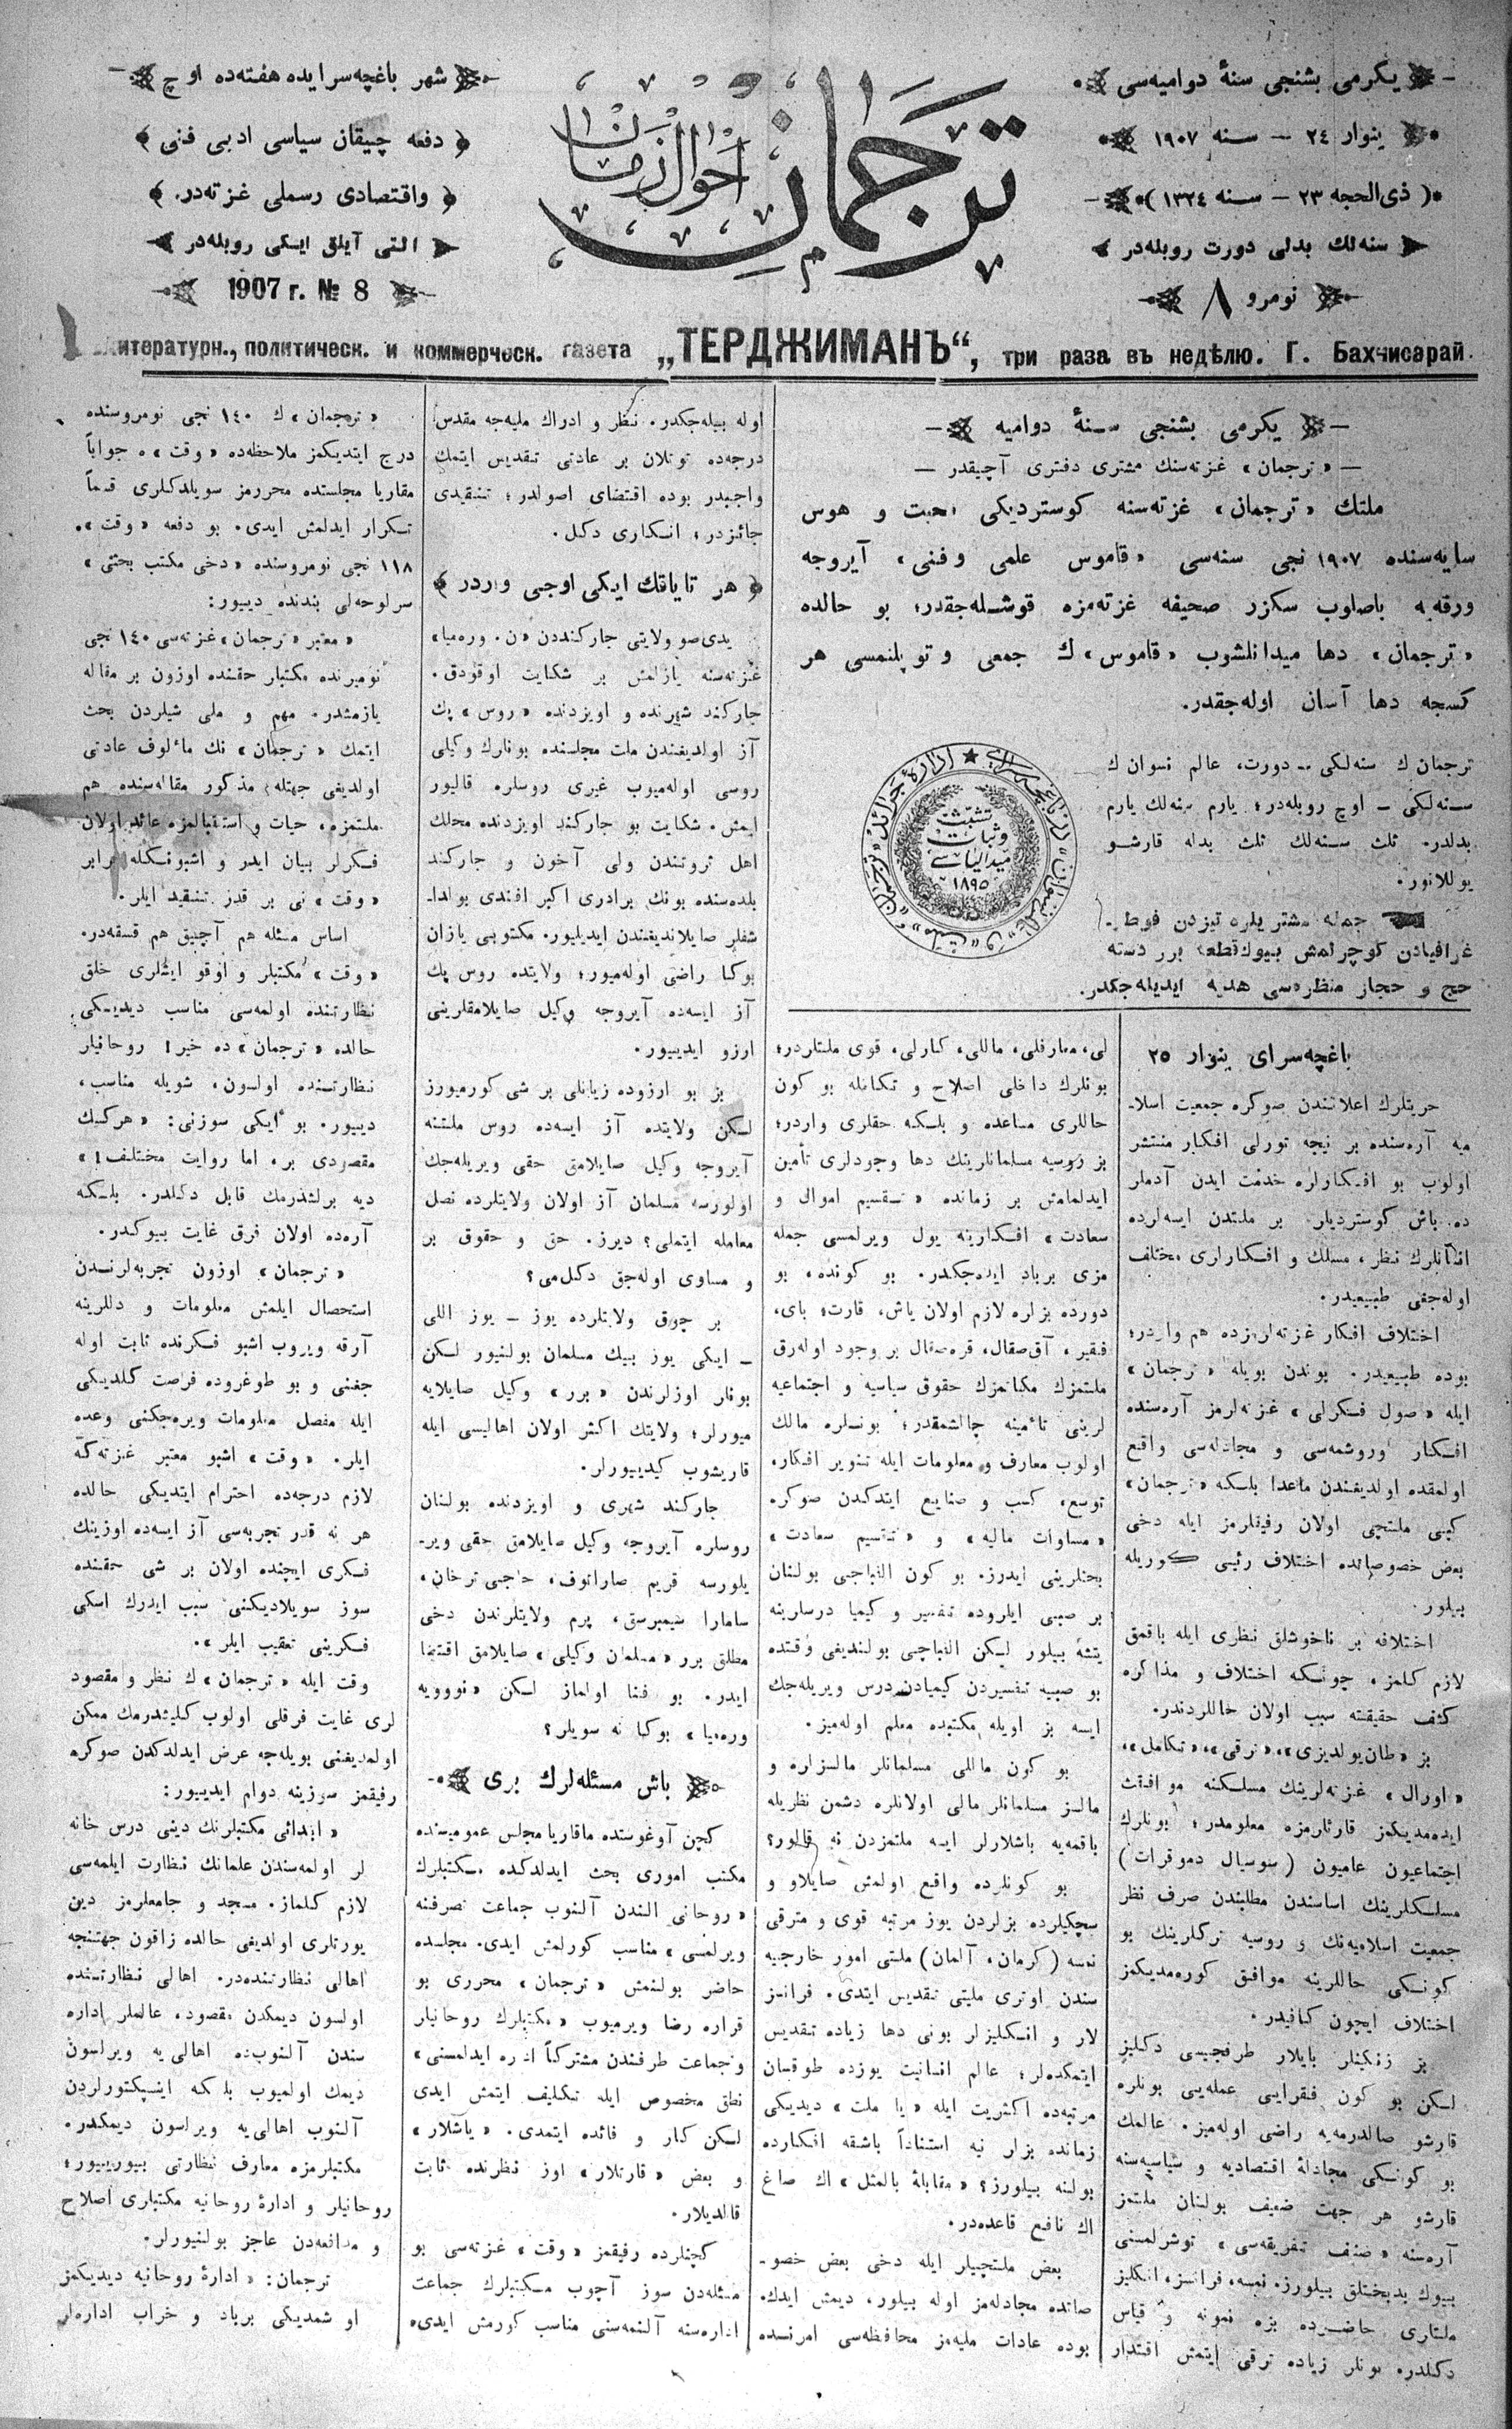 یكرمی بشنجی سنهٔ دوامیه‌سی
ینوار ٢٤ — سنه ١٩٠٧
(ذی‌الحجه ٢٣ — سنه ١٣٢٤)
سنه‌لك بدلی دورت روبله‌در
نومرو ٨
ترجمان
احوال زمان
شهر باغچه‌سرایده هفته‌ده اوچ
دفعه چیقان سیاسی ادبی فنی
واقتصادی رسملی غزته‌در.
التی آیلق ایكی روبله‌در
1907 г. № 8
Литературн., политическ. и коммерческ. газета „ТЕРДЖИМАНЪ“, три раза въ недѣлю. Г. Бахчисарай.
یكرمی بشنجی سنهٔ دوامیه
— «ترجمان» غزته‌سنك مشتری دفتری آچیقدر —
ملتك «ترجمان» غزته‌سنه كوستردیكی محبت و هوس
سایه‌سنده ١٩٠٧ نجی سنه‌سی «قاموس علمی وفنی» آیروجه
ورقه‌یه باصلوب سكزر صحیفه غزته‌مزه قوشله‌جقدر؛ بو حالده
«ترجمان» دها میدانلشوب «قاموس»ك جمعی وتوپلنمسی هر
كسجه دها آسان اوله‌جقدر.
ترجمان‌ك سنه‌لكی — دورت، عالم نسوان‌ك
سنه‌لكی — اوچ روبله‌در؛ یارم سنه‌لك یارم
بدلدر. ثلث سنه‌لك ثلث بدله قارشو
یوللانور.
جمله مشتریلره تیزدن فوطو-
غرافیادن كوچرلمش بیوك قطعه برر دسته
حج و حجاز منظره‌سی هدیه ایدیله‌جكدر.
تشبثت
وثبات
میدالیاسی
١٨٩٥
باغچه‌سرای ینوار ٢٥
حریتلرك اعلانندن صوكره جمعیت اسلا-
میه آره‌سنده بر نیچه تورلی افكار منتشر
اولوب بو افكارلره خدمت ایدن آدملر
ده باش كوستردیلر. بر ملتدن ایسه‌لرده
انسانلرك نظر، مسلك و افكارلری مختلف
اوله‌جغی طبیعیدر.
اختلاف افكار غزته‌لریزده هم واردر؛
بوده طبیعیدر. بوندن بویله «ترجمان»
ایله «صول فكرلی» غزته‌لرمز آره‌سنده
افكار اوروشمه‌سی و مجادله‌سی واقع
اولمقده اولدیغندن ماعدا بلكه «ترجمان»
كبی ملتچی اولان رفیقلرمز ایله دخی
بعض خصوصاتده اختلاف رئیی كوریله
بیلور.
اختلافه بر ناخوشلق نظری ایله باقمق
لازم كلمز، چونكه اختلاف و مذاكره
كشف حقیقته سبب اولان حاللردندر.
بز «طان یولدیزی»، «ترقی»، «تكامل»،
«اورال» غزته‌لرینك مسلكنه موافقت
ایده‌مدیكمز قارئلرمزه معلومدر؛ بونلرك
اجتماعیون عامیون (سوسیال دموقرات)
مسلكلرینك اساسندن مطلبندن صرف نظر
جمعیت اسلامیه‌نك و روسیه تركلرینك بو
كونكی حاللرینه موافق كوره‌مدیكمز
اختلاف ایچون كافیدر.
بز زنكینلر بایلار طرفجیسی دكلیز
لكن بو كون فقرایی عمله‌یی بونلره
قارشو صالدرمه‌یه راضی اوله‌میز. عالمك
بو كونكی مجادلهٔ اقتصادیه و سیاسیه‌سنه
قارشو هر جهت ضعیف بولنان ملتمز
آره‌سنه «صنف تفریقه‌سی» توشرلمسنی
بیوك بدبختلق بیلورز. نمسه، فرانسز، انكلیز
ملتلری حاضرده بزه نمونه و قیاس
دكلدر. بونلر زیاده ترقی ایتمش اقتدار
لی، معارفلی، ماللی، كبارلی، قوی ملتلردر؛
بونلرك داخلی اصلاح و تكامله بو كون
حاللری مساعده و بلكه حقلری واردر؛
بز روسیه مسلمانلرینك دها وجودلری تأمین
ایدلمامش بر زمانده «تقسیم اموال و
سعادت» افكارینه یول ویرلمسی جمله
مزی برباد ایده‌جكدر. بو كونده، بو
دورده بزلره لازم اولان یاش، قارت؛ بای،
فقیر، آق‌صقال، قره‌صقال بر وجود اوله‌رق
ملتمزك مكاتمزك حقوق سیاسیه و اجتماعیه
لرینی تأمینه چالشمقدر؛ بونلره مالك
اولوب معارف و معلومات ایله تنویر افكار،
توسع، كسب و صنایع ایتدكدن صوكره
«مساوات مالیه» و «تقسیم سعادت»
بحثلرینی ایدرز. بو كون الفباجی بولنان
بر صبی ایلروده تفسیر و كیمیا درسلرینه
یتشه بیلور لیكن الفباچی بولندیغی وقتده
بو صبییه تفسیردن كیمیادن درس ویریله‌جك
ایسه بز اویله مكتبده معلم اوله‌میز.
بو كون ماللی مسلمانلر مالسزلره و
مالسز مسلمانلر مالی اولانلره دشمن نظریله
باقمه‌یه باشلارلر ایسه ملتمزدن نه قالور؟
بو كونلرده واقع اولمش صایلاو و
سچكیلرده بزلردن یوز مرتبه قوی و مترقی
نمسه (كرمان، آلمان) ملتی امور خارجیه
سندن اوتری ملیتی تقدیس ایتدی. فرانسز
لار و انكلیزلر بونی دها زیاده تقدیس
ایتمكده‌لر؛ عالم انسانیت یوزده طوقسان
مرتبه‌ده اكثریت ایله «یا ملت» دیدیكی
زمانده بزلر نیه استناداً باشقه افكارده
بولنه بیلورز؟ «مقابلهٔ بالمثل» اك صاغ
اك نافع قاعده‌در.
بعض ملتچیلر ایله دخی بعض خصو-
صاتده مجادله‌مز اوله بیلور، دیمش ایدك.
بوده عادات ملیه‌مز محافظه‌سی امرنده
اوله بیله‌جكدر. نظر و ادراك ملیه‌جه مقدس
درجه‌ده توتلان بر عادتی تقدیس ایتمك
واجبدر بوده اقتضای اصولدر؛ تنقیدی
جائزدر، انكاری دكل.
هر تایاقك ایكی اوجی واردر
یدی‌صو ولایتی جاركنددن «ن. وره‌میا»
غزته‌سنه یازلمش بر شكایت اوقودق.
جاركند شهرنده و اویزدنده «روس» پك
آز اولدیغندن ملت مجلسنده بونلرك وكیلی
روسی اوله‌میوب غیری روسلره قالیور
ایمش. شكایت بو جاركند اویزدنده محلك
اهل ثروتندن ولی آخون و جاركند
بلده‌سنده بونك برادری اكبر افندی بولدا-
شفلر صایلاندیغندن ایدیلیور. مكتوبی یازان
بوكا راضی اوله‌میور؛ ولایتده روس پك
آز ایسه‌ده آیروجه وكیل صایلامقلرینی
ارزو ایدییور.
بز بو ارزوده زیانلی بر شی كورمیورز
لكن ولایتده آز ایسه‌ده روس ملتنه
آیروجه وكیل صایلامق حقی ویریله‌جك
اولورسه مسلمان آز اولان ولایتلرده نصل
معامله ایتملی؟ دیرز. حق و حقوق بر
و مساوی اوله‌جق دكل‌می؟
بر چوق ولایتلرده یوز — یوز اللی
— ایكی یوز بیك مسلمان بولنیور لكن
بونلر اوزلرندن «برر» وكیل صایلایه
میورلر؛ ولایتك اكثر اولان اهالیسی ایله
قاریشوب كیدییورلر.
جاركند شهری و اویزدنده بولنان
روسلره آیروجه وكیل صایلامق حقی ویر-
یلورسه قریم صاراتوف، حاجی‌ترخان،
سامارا سیمبرسق، پرم ولایتلرندن دخی
مطلق برر «مسلمان وكیلی» صایلامق اقتضا
ایدر. بو فنا اولماز لكن «نوویه
وره‌میا» بوكا نه سویلر؟
باش مسئله‌لرك بری
كچن آوغوستده ماقاریا مجلس عمومیسنده
مكتب اموری بحث ایدلدكده مكتبلرك
«روحانی الندن آلنوب جماعت تصرفنه
ویرلمسی» مناسب كورلمش ایدی. مجلسده
حاضر بولنمش «ترجمان» محرری بو
قراره رضا ویرمیوب «مكتبلرك روحانیلر
وجماعت طرفندن مشتركاً اداره ایدلمسنی»
نطق مخصوص ایله تكلیف ایتمش ایدی
لكن كار و فائده ایتمدی. «یاشلار»
و بعض «قارتلار» اوز نظرنده ثابت
قالدیلار.
كچنلرده رفیقمز «وقت» غزته‌سی بو
مسئله‌دن سوز آچوب مكتبلرك جماعت
اداره‌سنه آلنمه‌سنی مناسب كورمش ایدی.
«ترجمان»ك ١٤٠ نجی نومروسنده
درج ایتدیكمز ملاحظه‌ده «وقت»ه جواباً
مقاریا مجلسنده محررمز سویلدكلری قسماً
تكرار ایدلمش ایدی. بو دفعه «وقت»
١١٨ نجی نومروسنده «دخی مكتب بحثی»
سرلوحه‌لی بندنده دییور:
«معتبر «ترجمان» غزته‌سی ١٤٠ نجی
نومیرنده مكتبلر حقنده اوزون بر مقاله
یازمشدر. مهم و ملی شیلردن بحث
ایتمك «ترجمان»نك مألوف عادتی
اولدیغی جهتله، مذكور مقاله‌سنده هم
ملتمزه، حیات و استقبالمزه عائد اولان
فكرلر بیان ایدر و اشبونكله برابر
«وقت»نی بر قدر تنقید ایلر.
اساس مسئله هم آچیق هم قسقه‌در.
«وقت» مكتبلر و اوقو ایشلری خلق
نظارتنده اولمه‌سی مناسب دیدیكی
حالده «ترجمان»ده خیر! روحانیلر
نظارتنده اولسون، شویله مناسب،
دییور. بو ایكی سوزنی: «هركیك
مقصودی بر، اما روایت مختلف!»
دیه برلشدرمك قابل دكلدر. بلكه
آره‌ده اولان فرق غایت بیوكدر.
«ترجمان» اوزون تجربه‌لرندن
استحصال ایلمش معلومات و دللرینه
آرقه ویروب اشبو فكرنده ثابت اوله
جغنی و بو طوغروده فرصت كلدیكی
ایله مفصل معلومات ویره‌جكنی وعده
ایلر. «وقت» اشبو معتبر غزته‌گه
لازم درجه‌ده احترام ایتدیكی حالده
هر نه قدر تجربه‌سی آز ایسه‌ده اوزینك
فكری ایچنده اولان بر شی حقنده
سوز سویلادیكنی سبب ایدرك اسكی
فكرینی تعقیب ایلر».
وقت ایله «ترجمان»ك نظر و مقصود
لری غایت فرقلی اولوب كلیشدرمك ممكن
اولمدیغنی بویله‌جه عرض ایدلدكدن صوكره
رفیقمز سوزینه دوام ایدییور:
«ابتدائی مكتبلرنك دینی درس خانه
لر اولمه‌سندن علمانك نظارت ایلمه‌سی
لازم كلماز. مسجد و جامعلرمز دین
یورتلری اولدیغی حالده زاقون جهتنجه
اهالی نظارتنده‌در. اهالی نظارتنده
اولسون دیمكدن مقصود، عالملر اداره
سندن آلنوب‌ده اهالی‌یه ویرلسون
دیمك اولمیوب بلكه اینسپكتورلردن
آلنوب اهالی‌یه ویرلسون دیمكدر.
مكتبلرمزه معارف نظارتی بیورییور؛
روحانیلر و ادارهٔ روحانیه مكتبلری اصلاح
و مدافعه‌دن عاجز بولنیورلر.
ترجمان: «ادارهٔ روحانیه دیدیكمز
او شمدیكی برباد و خراب اداره‌لر